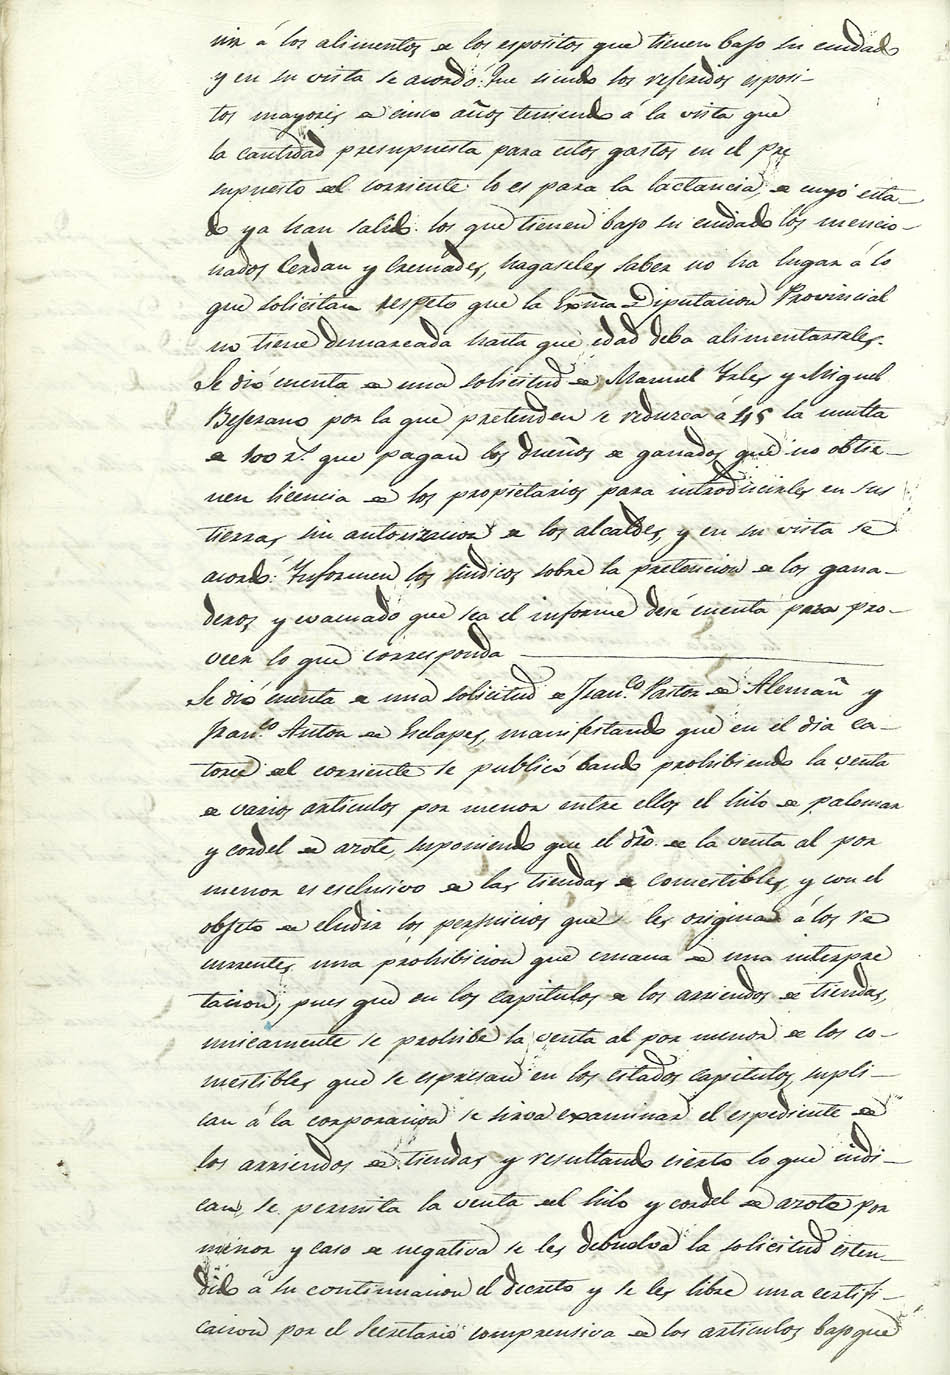 nir á los alimentos de los espositos que tienen bajo su cuidado
y en su vista se acordó: Que siendo los referidos esposi-
tos mayores de cinco años teniendo á la vista que
la cantidad presupuesta para estos gastos en el pre
supuesto del corriente lo es para la lactancia, de cuyo esta-
do ya han salido los que tienen bajo su cuidado los mencio-
nados Cerdan y Cremades, hagaseles saber no ha lugar á lo
que solicitan respeto que la Exma Diputacion Provincial
no tiene demarcada hasta que edad deba alimentarseles.
Se dió cuenta de una solicitud de Manuel Yrles y Miguel
Bejerano por la que pretenden se reduzca á 45 la multa
de 100 rs. que pagan los dueños de ganados que no obtie-
nen licencia de los propietarios para introducirles en sus
tierras sin autorizacion de los alcaldes, y en su vista se
acordó: Ynformen los sindicos sobre la pretencion de los gana-
deros y evacuado que sea el informe dese cuenta para pro-
veer lo que corresponda
Se dió cuenta de una solicitud de Franco. Pastor de Alemañ y
Franco. Anton de Sclapes, manifestando que en el dia ca-
torce del corriente se publicó bando prohibiendo la venta
de varios artículos por menor entre ellos el hilo de palomar
y cordel de azote, suponiendo que el dro. de la venta al por
menor es esclusivo de las tiendas de comestibles, y con el
objeto de eludir los perjuicios que les origina á los re
currentes una prohibicion que emana de una interpre
tacion, pues que en los capitulos de los arriendos de tiendas,
unicamente se prohibe la venta al por menor de los co-
mestibles que se espresan en los citados capitulos, supli-
can á la corporacion se sirva examinar el espediente de
los arriendos de tiendas y resultando cierto lo que indi-
can, se permita la venta del hilo y cordel de azote por
menor y caso de negativa se les debuelva la solicitud esten-
dido á su continuacion el decreto y se les libre una certifi-
cacion por el Secretario comprensiva de los articulos bajo que